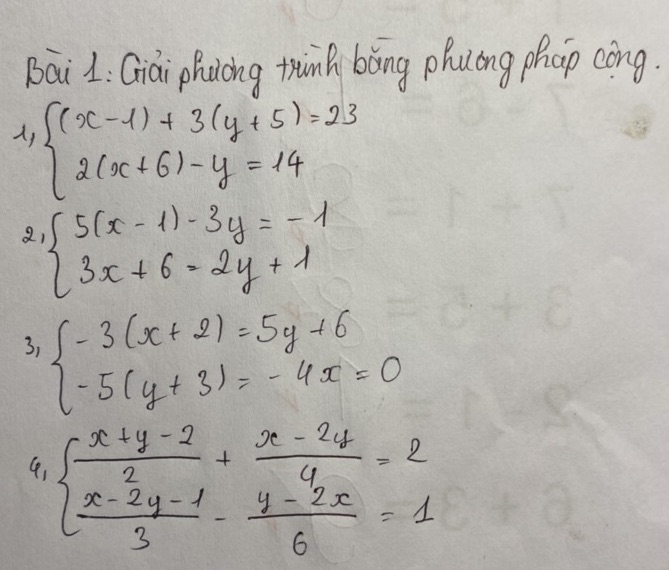 Bài 1: Giải phương trình bằng phương pháp cộng.
1, { (x - 1) + 3(y + 5) = 23
2(x + 6) - y = 14
2, { 5(x - 1) - 3y = - 1
3x + 6 = 2y + 1
3, { - 3(x + 2) = 5y + 6
- 5(y + 3) = - 4x = 0
4, { (x + y - 2)/2 + (x - 2y)/4 = 2
(x - 2y - 1)/3 - (y - 2x)/6 = 1